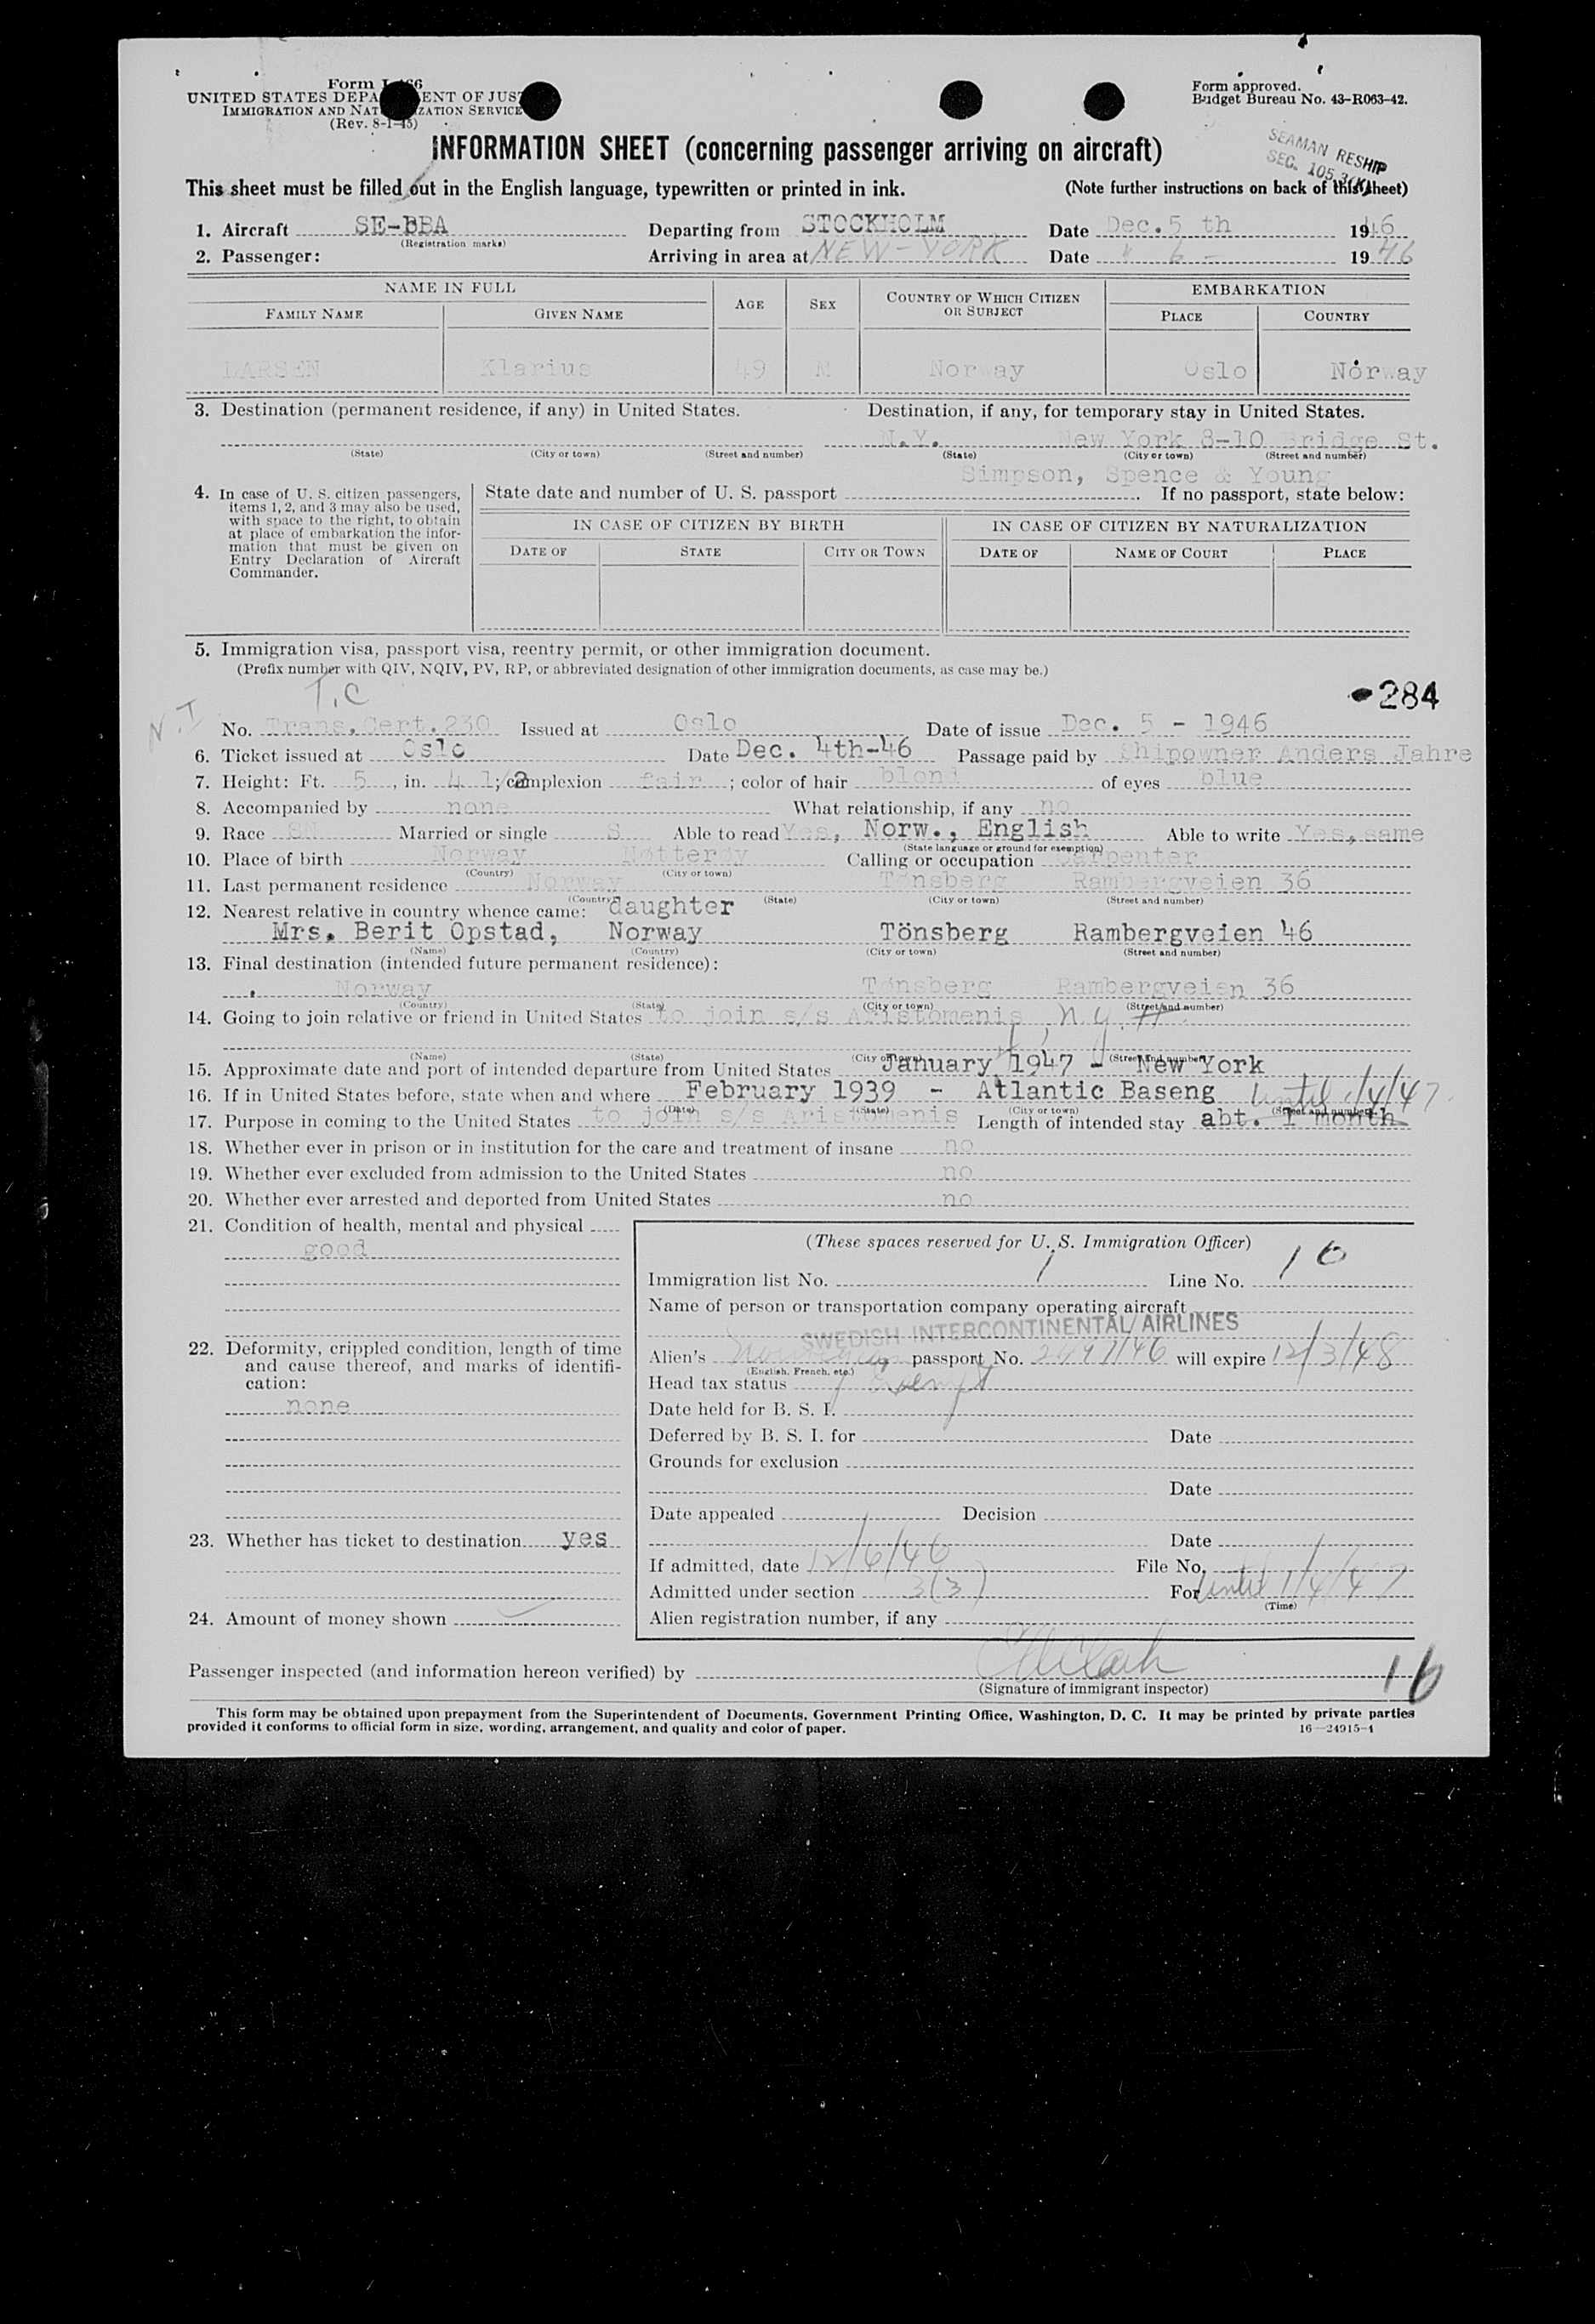 Form I-466
UNITED STATES DEPARTMENT OF JUSTICE
IMMIGRATION AND NATURALIZATION SERVICE
(Rev. 8-1-45)
Form approved.
Budget Bureau No. 43-R063-42.
INFORMATION SHEET (concerning passenger arriving on aircraft)
SEAMAN RESHIP
SEC. 105.3(K)
This sheet must be filled out in the English language, typewritten or printed in ink. (Note further instructions on back of this sheet)
1. Aircraft SE-BBA Departing from STOCKHOLM Date Dec.5 th 1946
(Registration marks)
2. Passenger: Arriving in area at NEW-YORK Date " 6 - 1946
NAME IN FULL AGE SEX COUNTRY OF WHICH CITIZEN OR SUBJECT EMBARKATION
FAMILY NAME GIVEN NAME PLACE COUNTRY
LARSEN Klarius 49 M Norway Oslo Norway
3. Destination (permanent residence, if any) in United States. Destination, if any, for temporary stay in United States.
N.Y. New York 8-10 Bridge St.
(State) (City or town) (Street and number) (State) (City or town) (Street and number)
Simpson, Spence & Young
4. In case of U. S. citizen passengers, items 1, 2, and 3 may also be used, with space to the right, to obtain at place of embarkation the information that must be given on Entry Declaration of Aircraft Commander.
State date and number of U. S. passport If no passport, state below:
IN CASE OF CITIZEN BY BIRTH IN CASE OF CITIZEN BY NATURALIZATION
DATE OF STATE CITY OR TOWN DATE OF NAME OF COURT PLACE
5. Immigration visa, passport visa, reentry permit, or other immigration document.
(Prefix number with QIV, NQIV, PV, RP, or abbreviated designation of other immigration documents, as case may be.)
T.C
284
N.I
No. Trans.Cert.230 Issued at Oslo Date of issue Dec. 5 - 1946
6. Ticket issued at Oslo Date Dec. 4th-46 Passage paid by Shipowner Anders Jahre
7. Height: Ft. 5, in. 4 1/2; complexion fair; color of hair blond of eyes blue
8. Accompanied by none What relationship, if any no
9. Race SN Married or single S Able to read Yes, Norw., English Able to write Yes, same
(State language or ground for exemption)
10. Place of birth Norway Nøtterøy Calling or occupation Carpenter
(Country) (City or town)
11. Last permanent residence Norway Tønsberg Rambergveien 36
(Country) (State) (City or town) (Street and number)
12. Nearest relative in country whence came: daughter
Mrs. Berit Opstad, Norway Tönsberg Rambergveien 46
(Name) (Country) (City or town) (Street and number)
13. Final destination (intended future permanent residence):
Norway Tønsberg Rambergveien 36
(Country) (State) (City or town) (Street and number)
14. Going to join relative or friend in United States to join s/s Aristomenis, N.Y.
(Name) (State) (City or town) (Street and number)
15. Approximate date and port of intended departure from United States January 1947 - New York
16. If in United States before, state when and where February 1939 - Atlantic Baseng until 1/4/47
(Date) (State) (City or town) (Street and number)
17. Purpose in coming to the United States to join s/s Aristomenis Length of intended stay abt. 1 month
18. Whether ever in prison or in institution for the care and treatment of insane no
19. Whether ever excluded from admission to the United States no
20. Whether ever arrested and deported from United States no
21. Condition of health, mental and physical
good
22. Deformity, crippled condition, length of time and cause thereof, and marks of identification:
none
23. Whether has ticket to destination yes
24. Amount of money shown
(These spaces reserved for U. S. Immigration Officer)
Immigration list No. 1 Line No. 16
Name of person or transportation company operating aircraft
SWEDISH INTERCONTINENTAL AIRLINES
Alien's Norwegian passport No. will expire 12/3/48
(English, French, etc.)
Head tax status Exempt
Date held for B. S. I.
Deferred by B. S. I. for Date
Grounds for exclusion
Date
Date appealed Decision
Date
If admitted, date 12/6/46 File No.
Admitted under section 3(3) For until 1/4/47
(Time)
Alien registration number, if any
Passenger inspected (and information hereon verified) by
(Signature of immigrant inspector)
16
This form may be obtained upon prepayment from the Superintendent of Documents, Government Printing Office, Washington, D. C. It may be printed by private parties
provided it conforms to official form in size, wording, arrangement, and quality and color of paper.
16—24915-1